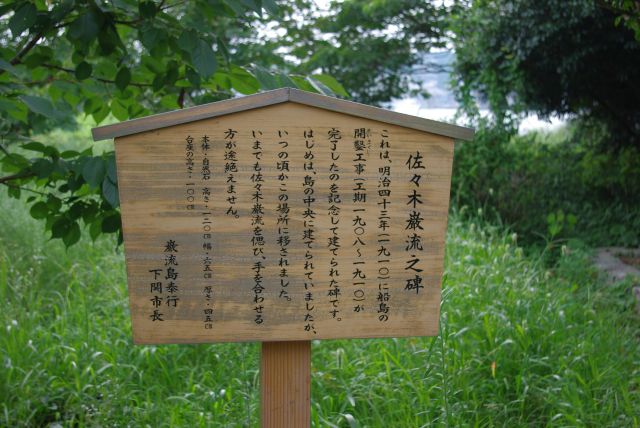 佐々木巌流之碑
これは、明治四十三年(一九一〇)に船島の
開鑿工事(工期一九〇八～一九一〇)が
完了したのを記念して建てられた碑です。
はじめは、島の中央に建てられていましたが、
いつの頃かこの場所に移されました。
いまでも佐々木巌流を偲び、手を合わせる
方が途絶えません。
本体・自然石 高さ・一二〇㎝ 幅・六五㎝ 厚さ・四五㎝
台座の高さ・一〇〇㎝
巌流島奉行
下関市長